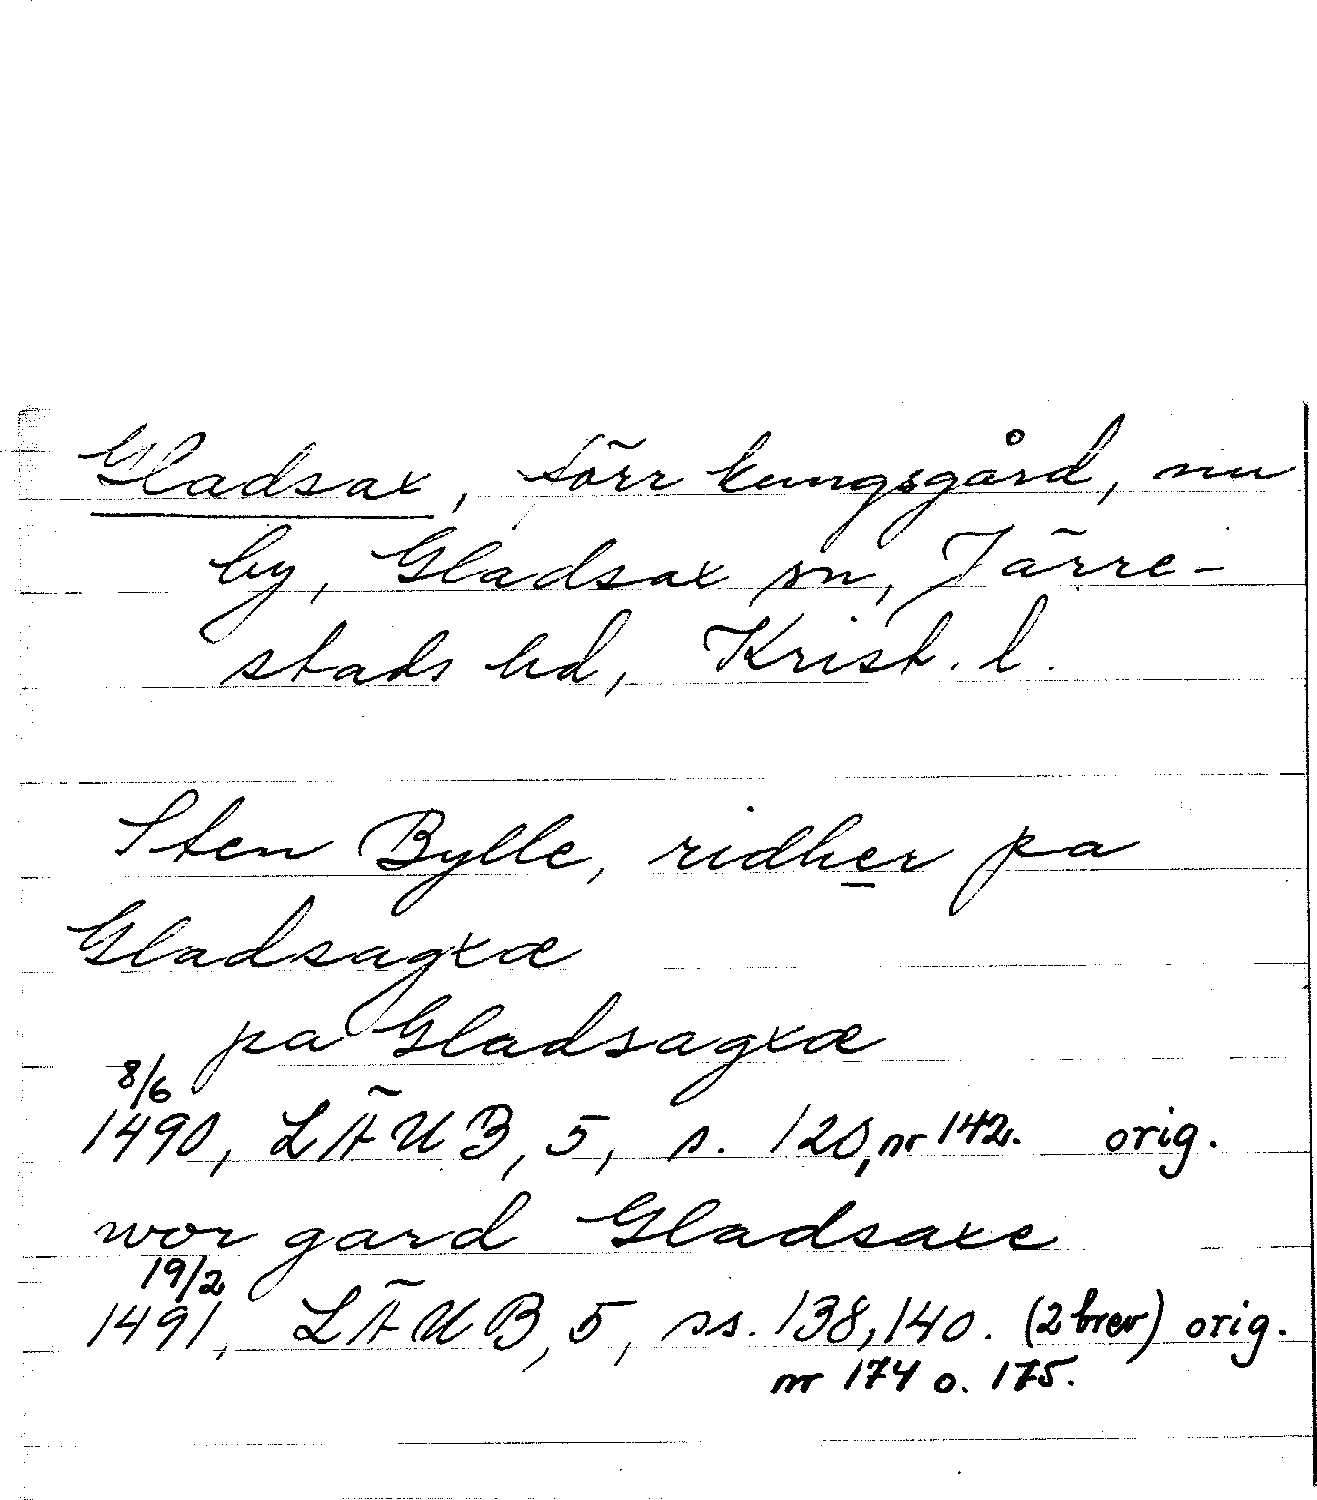 Gladsax, förr kungsgård, nu
by, Gladsax sn, Järre-
stads hd, Krist. l.
Sten Bylle, ridher pa
Gladsagxæ
pa Gladsagxæ
8/6
1490, LÄUB, 5, s. 120, nr 142. orig.
wor gard Gladsaxe
19/2
1491, LÄUB, 5, ss. 138, 140. (2 brev) orig.
nr 174 o. 175.